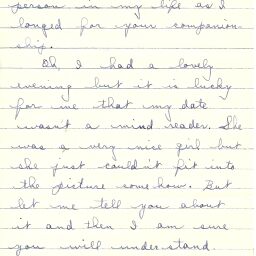 person in my life as I
longed for your companion-
ship.
Oh, I had a lovely
evening but it is lucky
for me that my date
wasn't a mind reader. She
was a very nice girl but
she just couldn't fit into
the picture somehow. But
let me tell you about
it and then I am sure
you will understand.